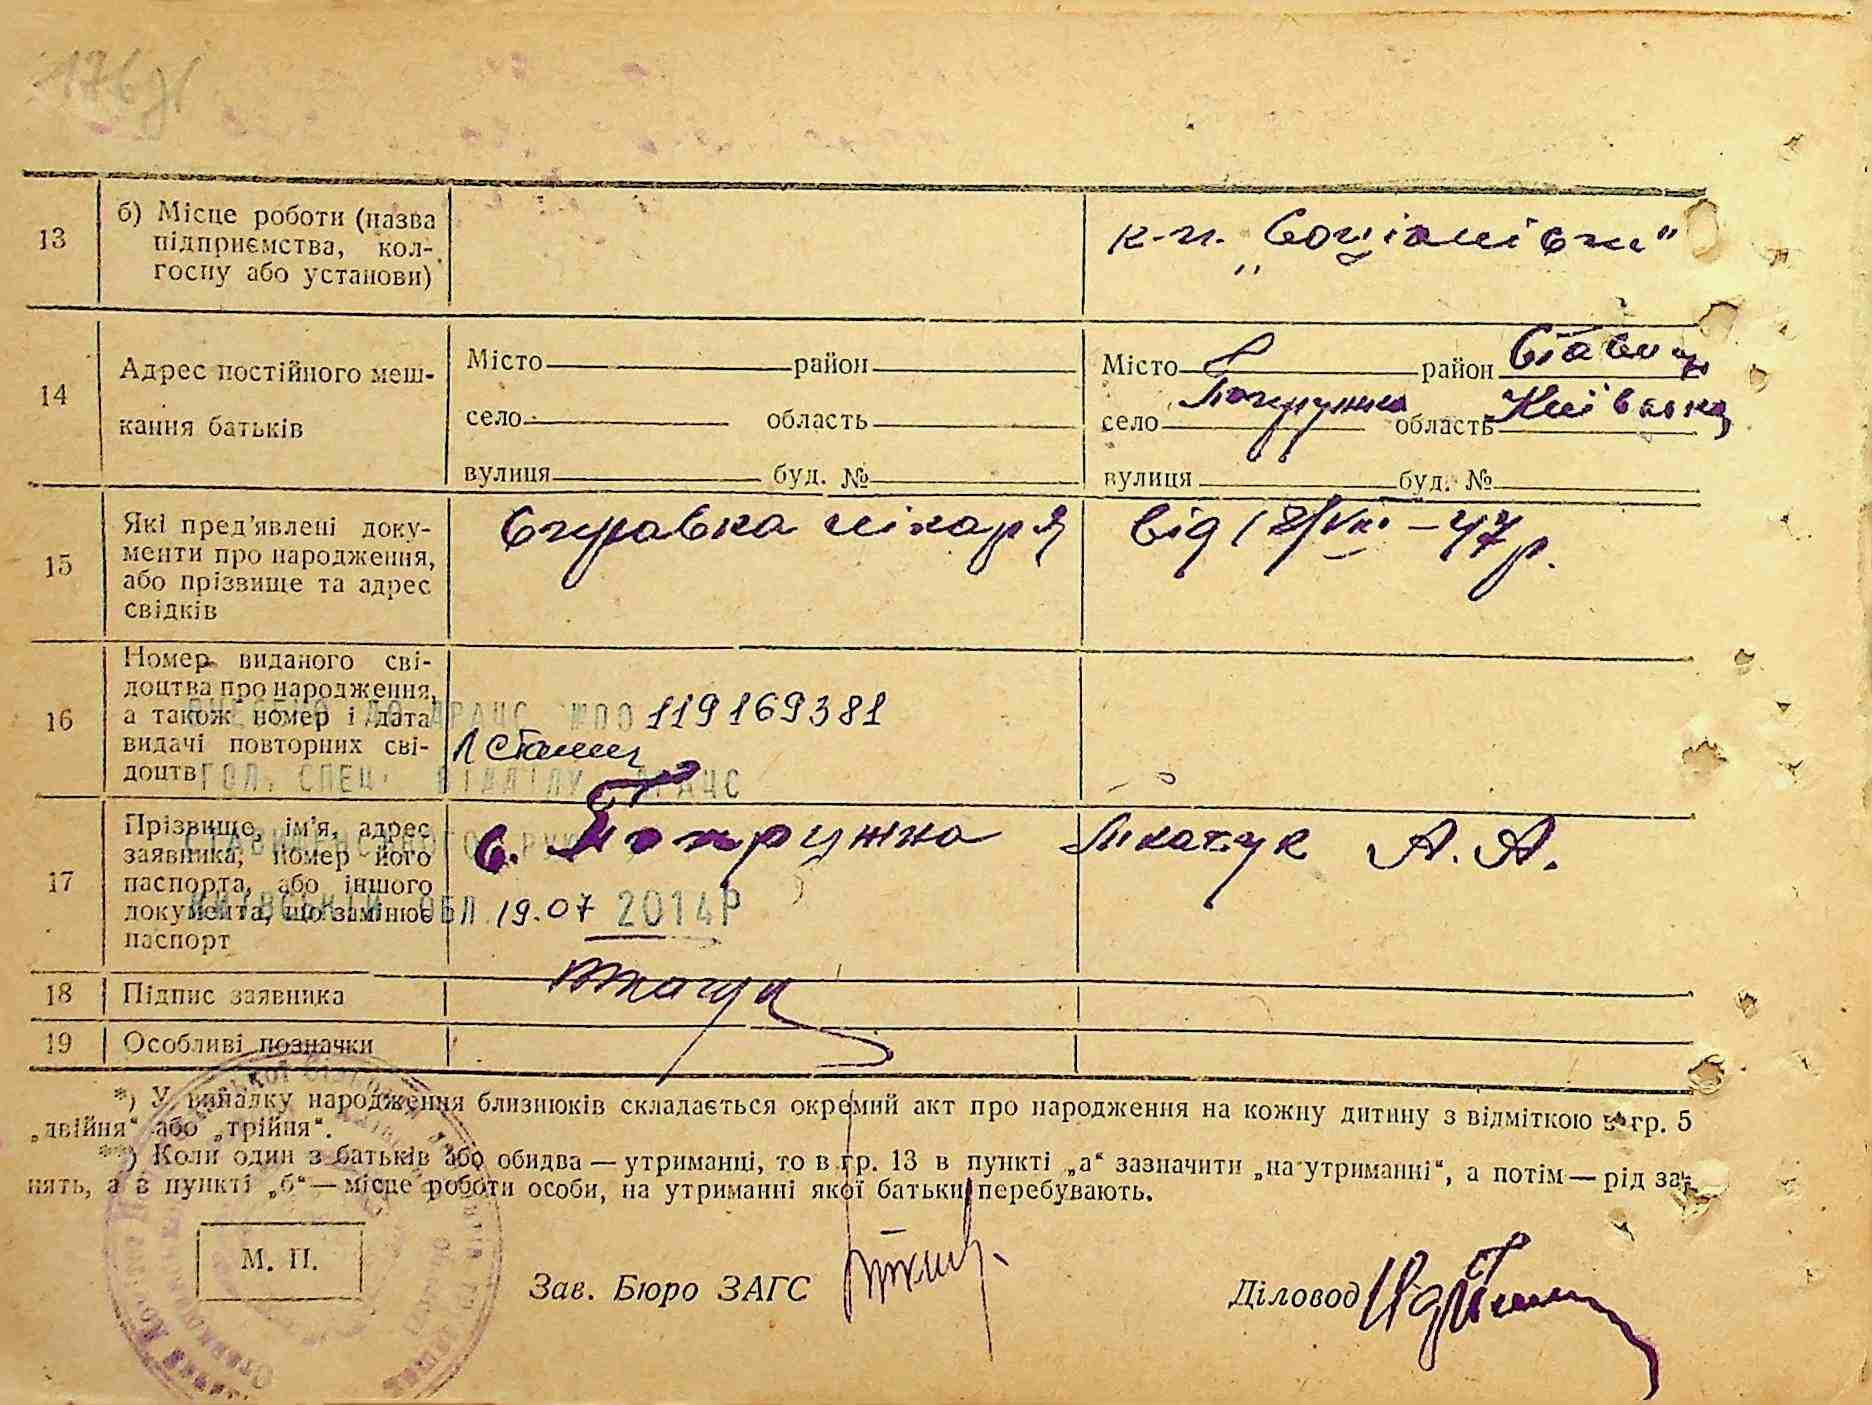 176
13
б) Місце роботи (назва
підприємства, кол-
госпу або установи)
к-п. „Соціалізм"
14
Адрес постійного меш-
кання батьків
Місто район
село область
вулиця буд. №
Місто район Ставищ
село Попружна область Київська
вулиця буд. №
15
Які пред'явлені доку-
менти про народження,
або прізвище та адрес
свідків
Справка лікаря від 18/VIII–47р.
16
Номер виданого сві-
доцтва про народження,
а також номер і дата
видачі повторних сві-
доцтв
ВНЕСЕНО ДО ДРАЦС №00119169381
ГОЛ. СПЕЦ. ВІДДІЛУ ДРАЦС
17
Прізвище, ім'я, адрес
заявника, номер його
паспорта, або іншого
документа, що замінює
паспорт
с. Попружна Ткачук А. А.
СТАВИЩЕНСЬКОГО РУЮ
КИЇВСЬКІЙ ОБЛ. 19.07 2014Р
18
Підпис заявника
19
Особливі позначки
*) У випадку народження близнюків складається окремий акт про народження на кожну дитину з відміткою в гр. 5
„двійня" або „трійня".
**) Коли один з батьків або обидва — утриманці, то в гр. 13 в пункті „а" зазначити „на утриманні", а потім — рід за-
нять, а в пункті „б" — місце роботи особи, на утриманні якої батьки перебувають.
М. П.
Зав. Бюро ЗАГС
Діловод